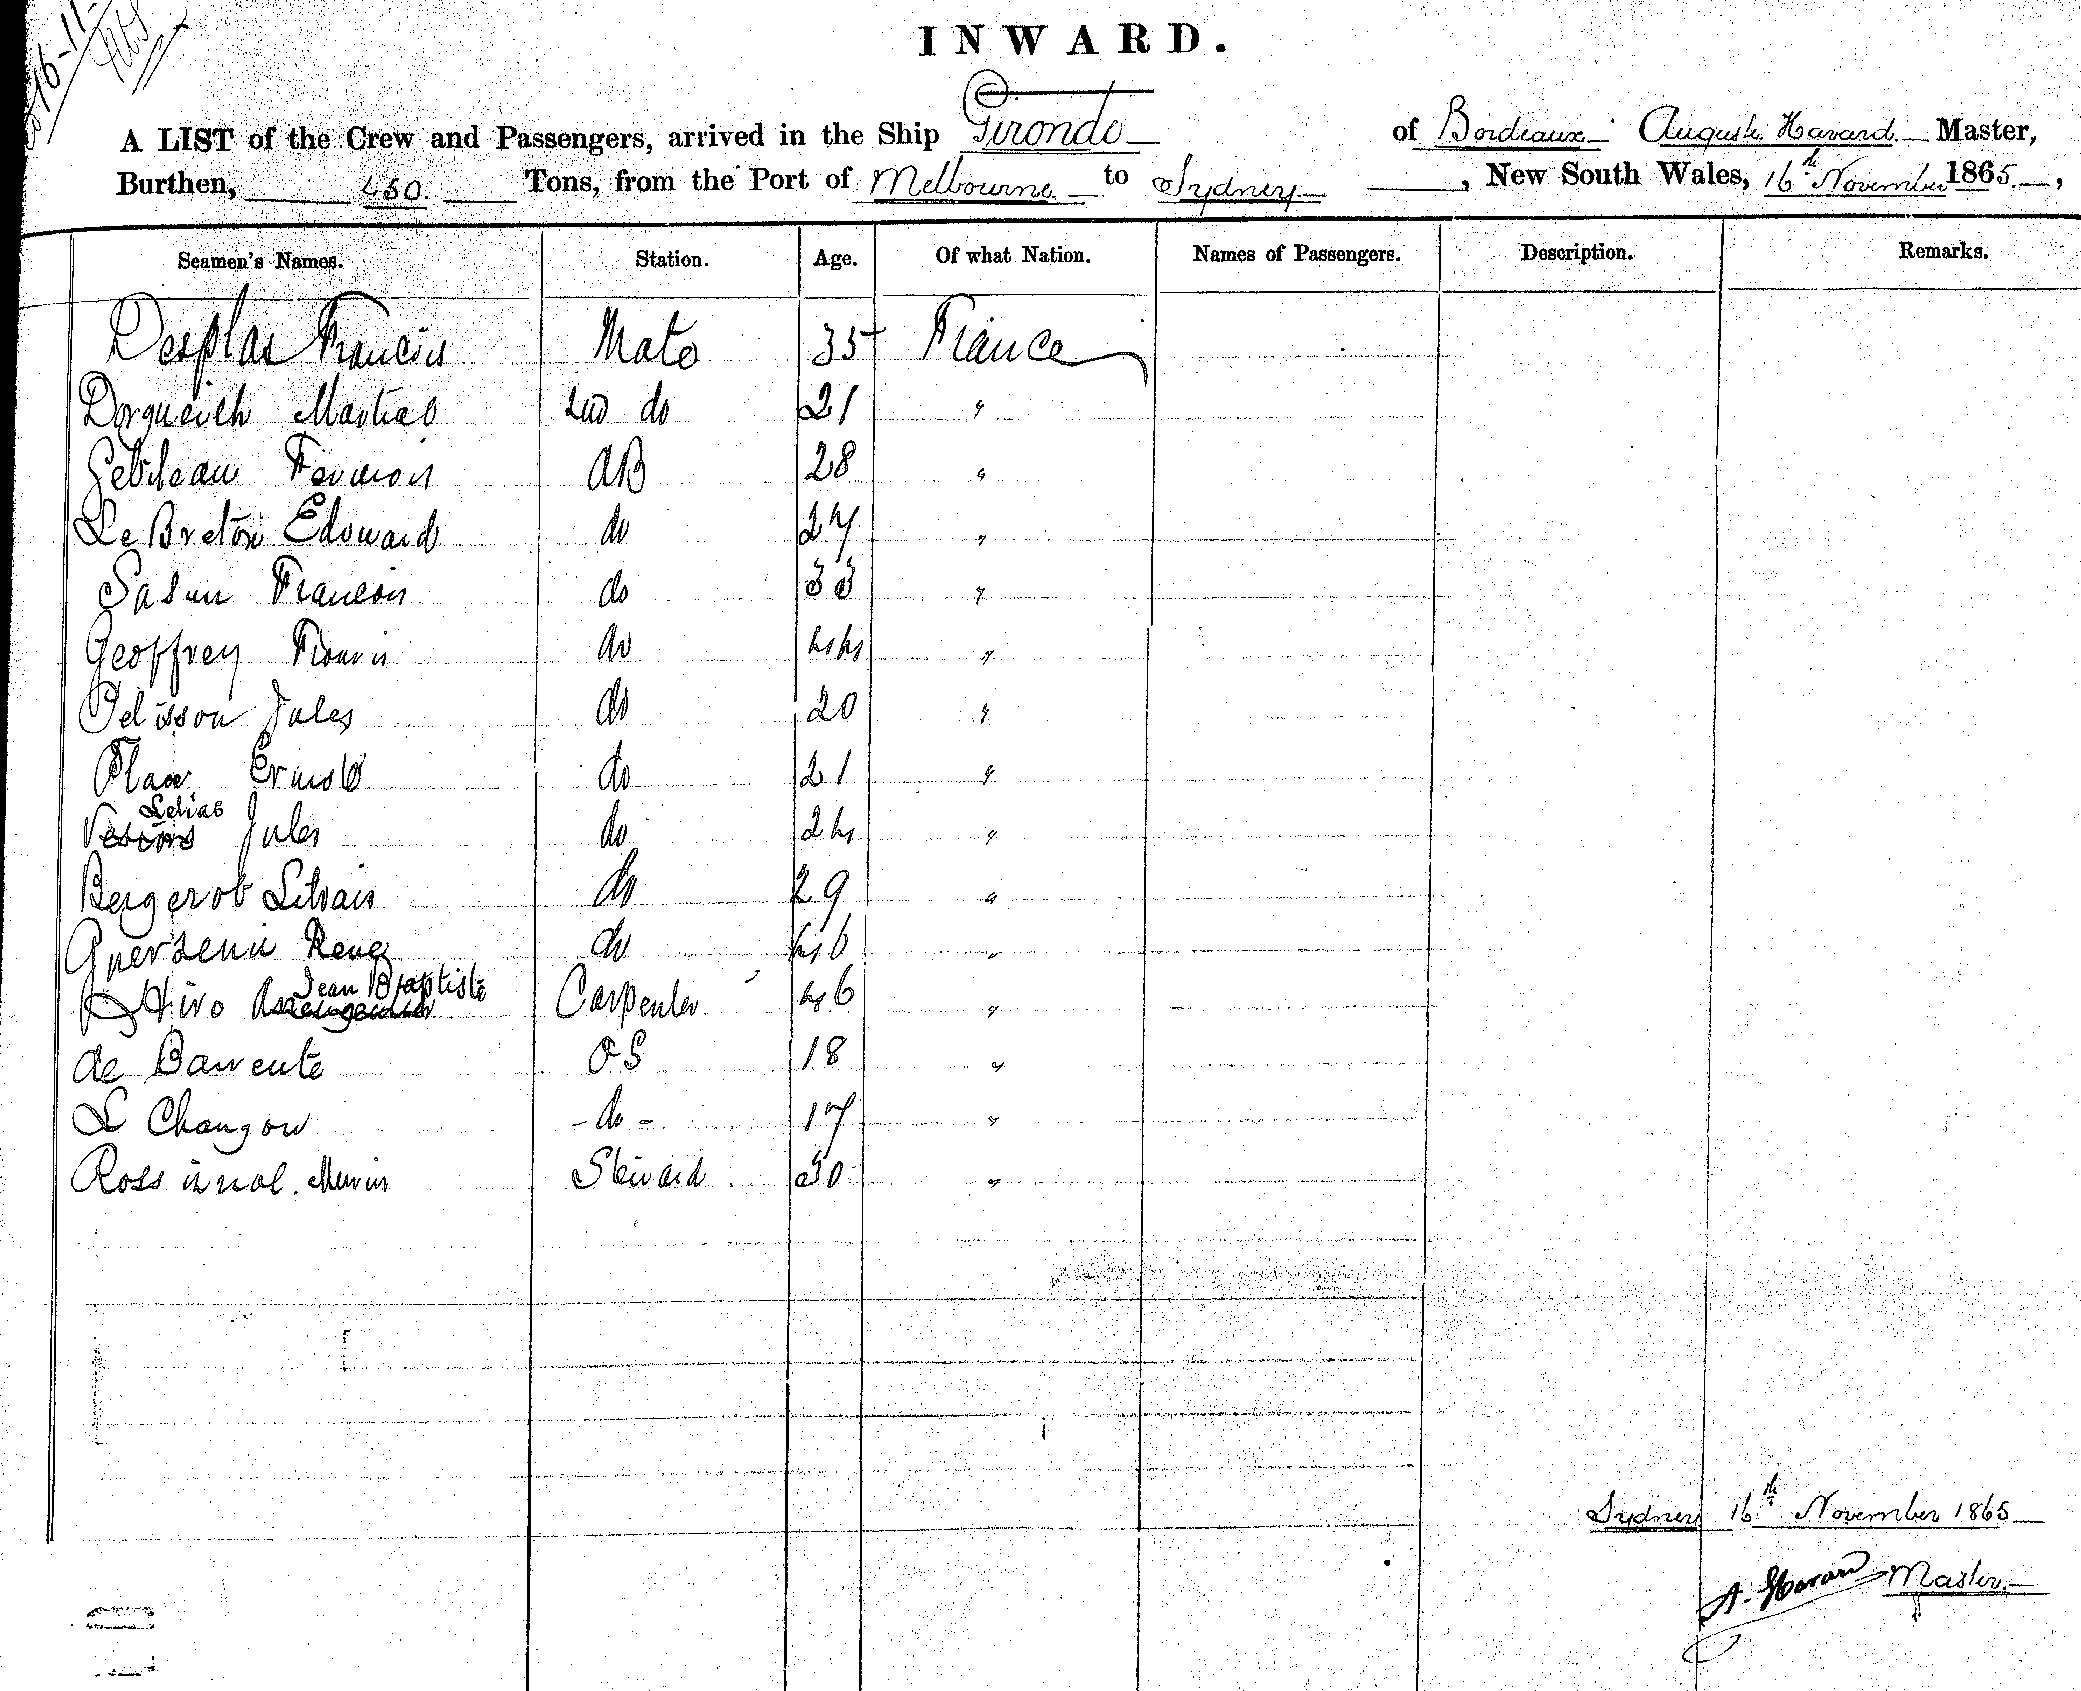 16-11-1865
INWARD.
A LIST of the Crew and Passengers, arrived in the Ship Gironde of Bordeaux Auguste Havard Master,
Burthen, 450 Tons, from the Port of Melbourne to Sydney, New South Wales, 16th November 1865,
Seamen's Names. Station. Age. Of what Nation. Names of Passengers. Description. Remarks.
Desplas Francois Mate 35 France
Dorgueilh Martial 2nd do 21 "
Gebileau Francois AB 28 "
Le Breton Edouard do 27 "
Salun Francois do 33 "
Geoffrey Francis do 44 "
Pelisson Jules do 20 "
Ernest do 21 "
Jules do 24 "
Bergerob do 29 "
Rene do 46 "
Jean Baptiste
Hivo Carpenter 46 "
de Barrente OS 18 "
Le Changour - do - 17 "
Rossignol Steward 30 "
Sydney 16th November 1865
A. Havard Master